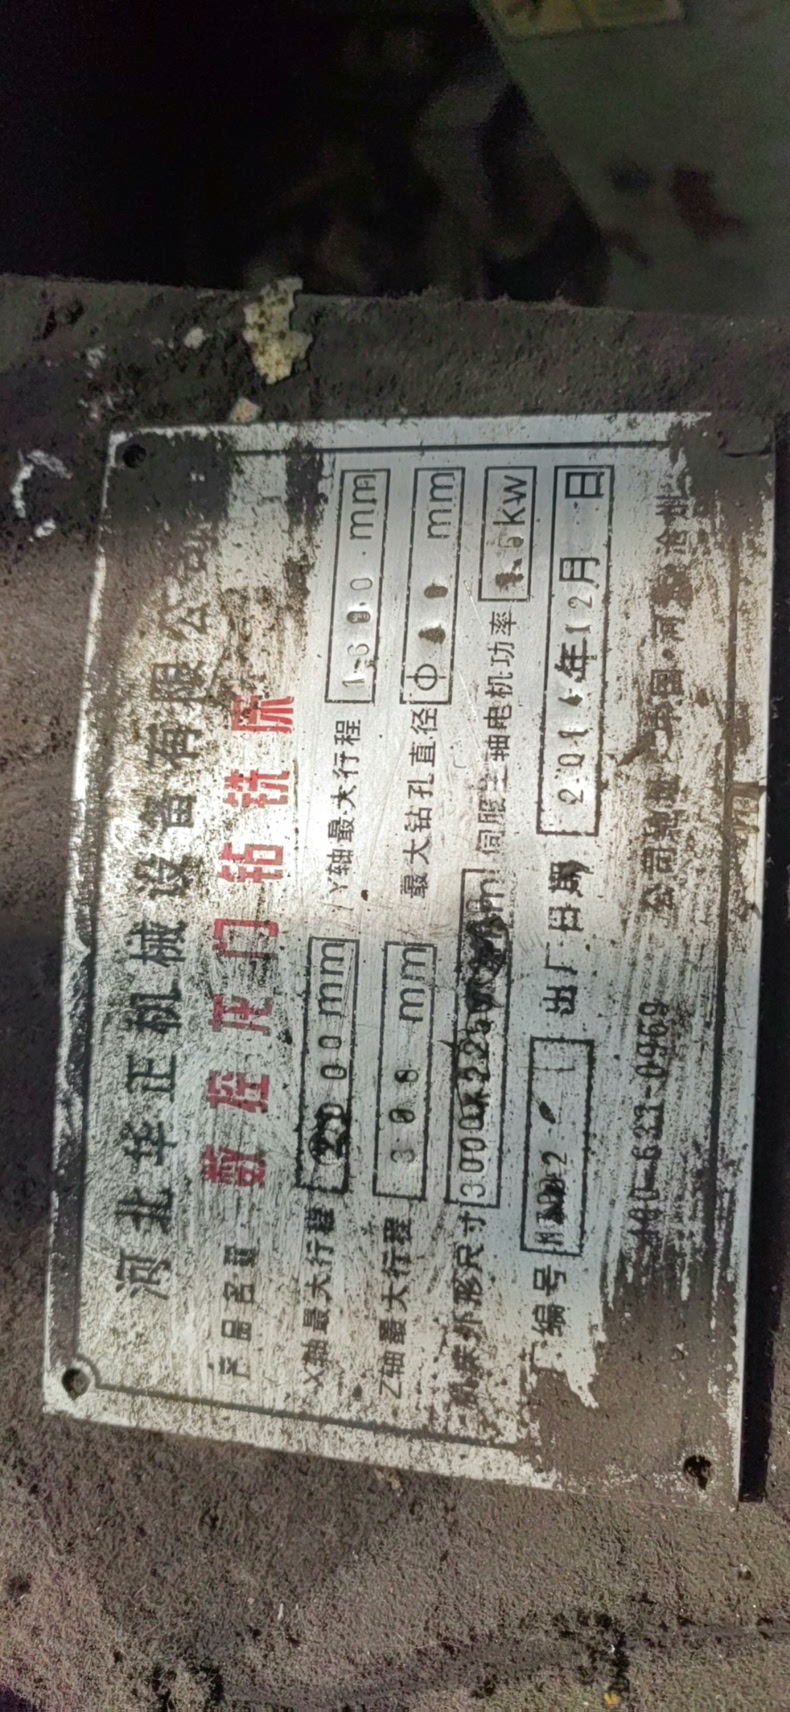 河北华正机械设备有限公司
产品名称 数控龙门钻铣床
X轴最大行程 2000mm Y轴最大行程 1600mm
Z轴最大行程 300 mm 最大钻孔直径 Φ mm
机床外形尺寸 3000X22 伺服主轴电机功率 kw
厂编号 出厂日期 201 年12月 日
400-633-0969 公司 中国·河北·沧州